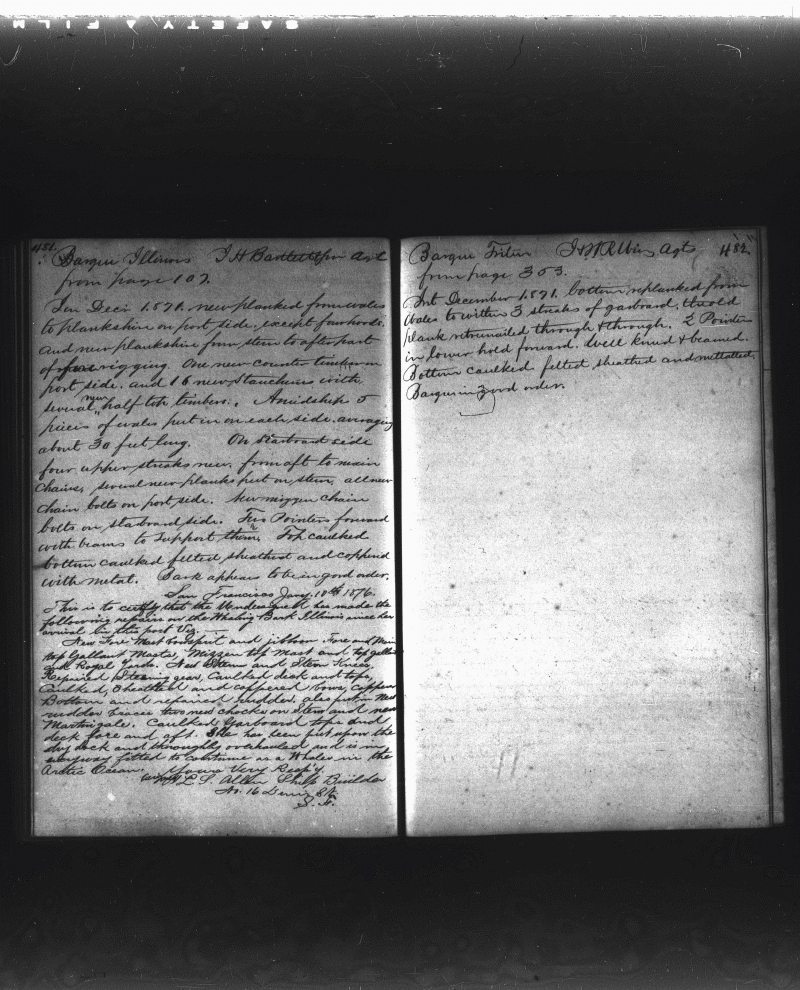 SAFETY FILM
481.
Barque Illinois I H Bartlett & Son Agt
from page 107.
In Decr 1871. new planked from wales
to plankshire on port side, except fourhoods.
And new plankshire from stem to after part
of rigging. One new counter timber on
port side. and 16 new Stanchions with
new
several half top timbers. Amidships 5
pieces of wales put in on each side. averaging
about 30 feet long. On starboard side
four upper streaks new. from aft to main
chains, several new planks put on stern, all new
chain bolts on port side. New mizzen chain
bolts on starboard side. Two Pointers forward
with beams to support them. Top caulked
bottom caulked felted sheathed and coppered
with metal. Bark appears to be in good order.
San Francisco Jany. 10th 1876.
This is to certify that the Undersigned has made the
following repairs on the Whaling Bark Illinois since her
arrival in this port Viz.
New Fore Mast bowsprit and jibboom Fore and Main
top Gallant Masts, Mizzen top Mast and top gallant
and Royal Yards. New Stem and Stern Knees,
Repaired Steering gear, Caulked deck and tops,
Caulked, Sheathed and coppered bows, copper
Bottom and repaired rudder, also put in New
rudder braces two new chocks on Stem and new
Martingale. Caulked Garboard tops and
deck fore and aft. She has been put upon the
dry dock and thoroughly overhauled and is in
everyway fitted to continue as a Whaler in the
Arctic Ocean. Yours Very Resp'y
L. S. Allen Ship Builder
No. 16 St.
S. F.
482
Barque Triton I & W R Wing Agts
from page 353.
Decembr 1871. bottom replanked from
Wales to within 3 streaks of garboard. the old
plank retrenailed through & through. 2 Pointers
in lower hold forward. Well kneed & beamed.
Bottom caulked felted sheathed and mettalled.
Barque in good order.